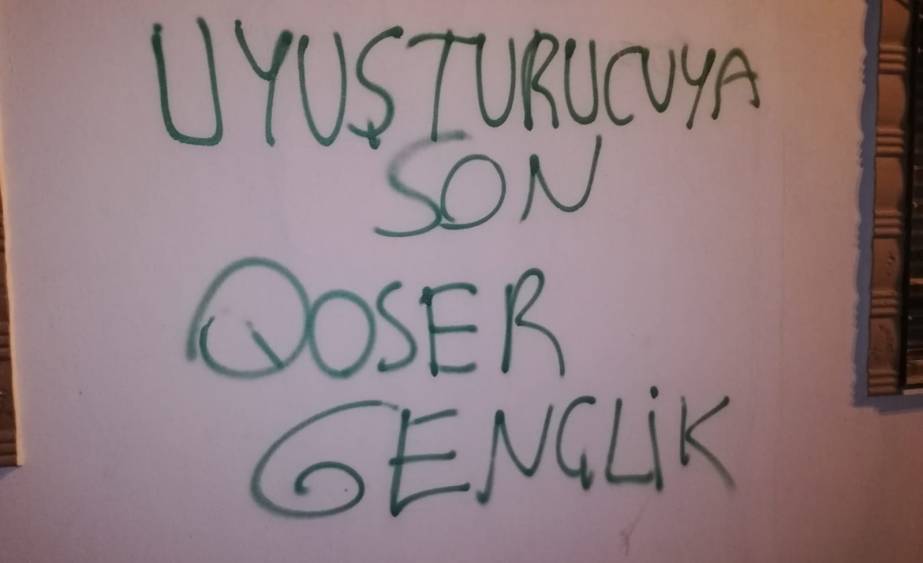 UYUŞTURUCUYA
SON
QOSER
GENÇLİK